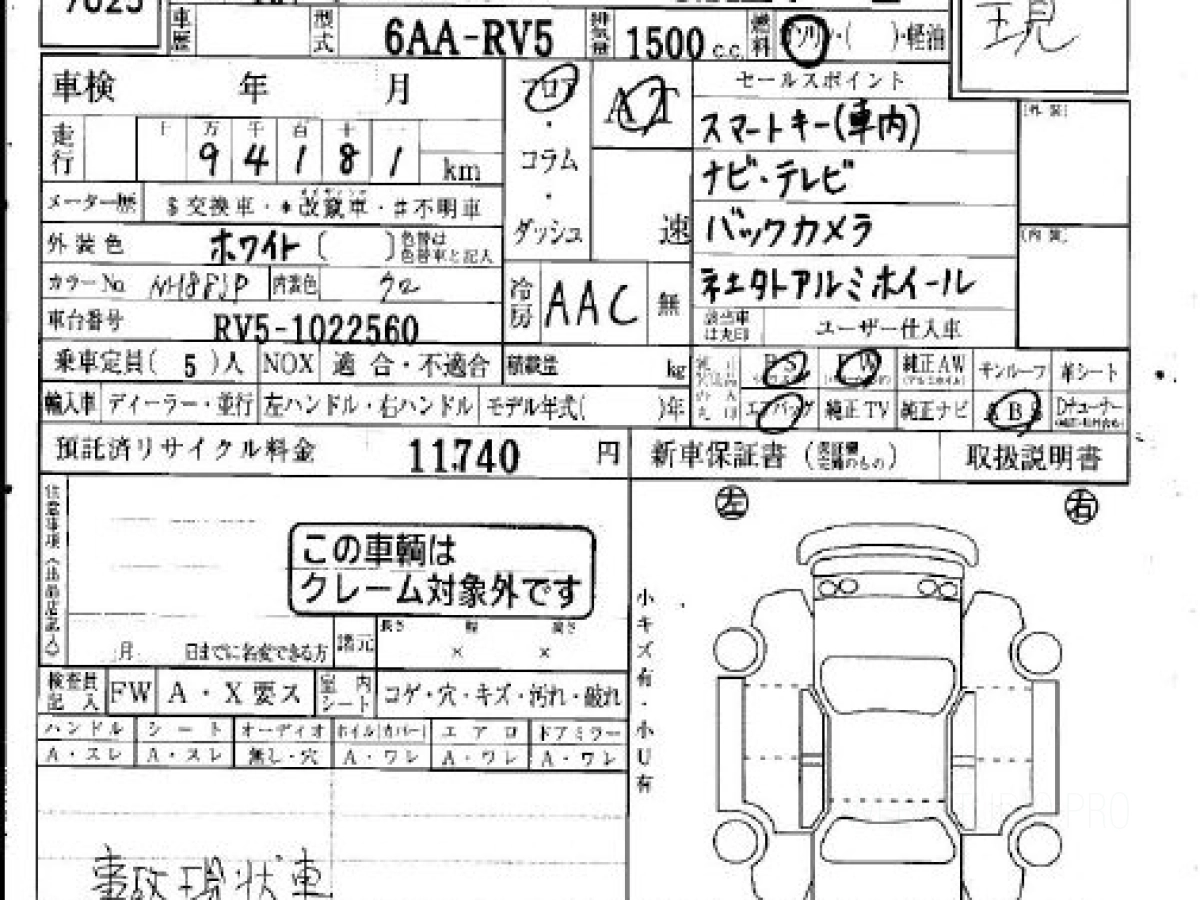 7025
車歴 型式 6AA-RV5 排気量 1500 c.c. 燃料 ガソリン・( )・軽油 現
車検 年 月 フロア・コラム・ダッシュ AT 速 セールスポイント
走行 十 万 千 百 十 一
9 4 1 8 1 km
スマートキー(車内)
ナビ・テレビ
メーター歴 $交換車・*改竄車・#不明車
バックカメラ
外装色 ホワイト ( ) 色替は色替車と記入
ネエタトアルミホイール
カラーNo. NH883P 内装色 クロ 冷房 AAC 無
車台番号 RV5-1022560 該当車は丸印 ユーザー仕入車
(外装)
(内装)
乗車定員( 5 )人 NOX 適合・不適合 積載量 kg PS PW 純正AW (アルミホイル) サンルーフ 革シート
輸入車 ディーラー・並行 左ハンドル・右ハンドル モデル年式( )年 エアバッグ 純正TV 純正ナビ ABS Dチューナー
預託済リサイクル料金 11,740 円 新車保証書 (保証継完備のもの) 取扱説明書
左 右
注意事項(出品店記入)
この車輌は
クレーム対象外です
月 日までに名変できる方 諸元 長さ × 幅 × 高さ
小キズ有・小U有
検査員記入 FW A・X要ス 室内シート コゲ・穴・キズ・汚れ・破れ
ハンドル シート オーディオ ホイル(カバー) エアロ ドアミラー
A・スレ A・スレ 無し・穴 A・ワレ A・ワレ A・ワレ
PRO
事故現状車